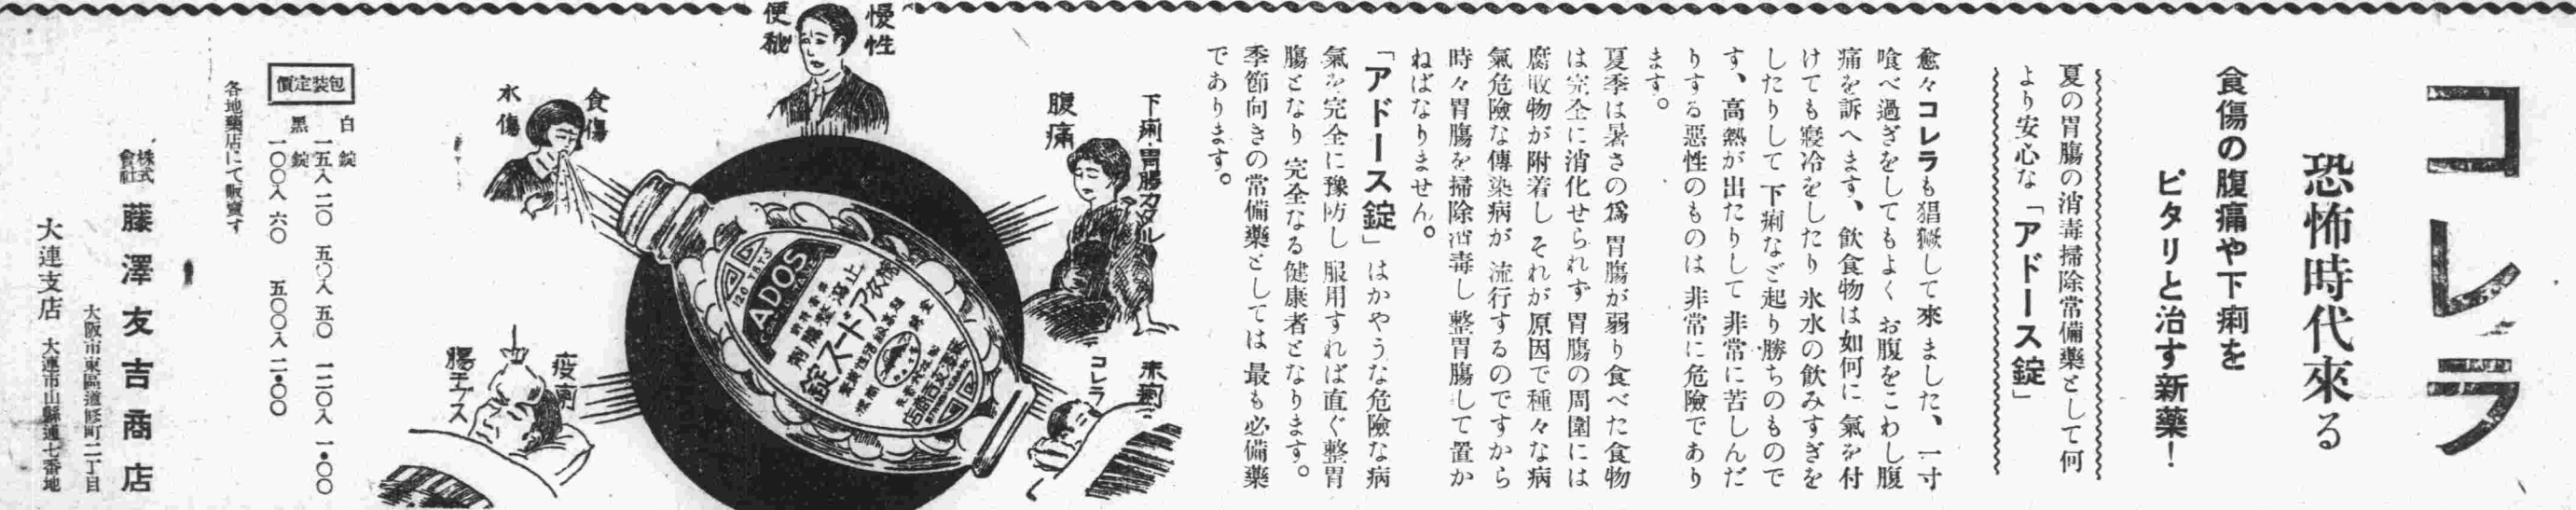 コレラ
恐怖時代來る
食傷の腹痛や下痢を
ピタリと治す新藥！
夏の胃腸の消毒掃除常備藥として何
より安心な「アドース錠」
愈々コレラも猖獗して來ました、一寸
喰べ過ぎをしてもよく お腹をこわし腹
痛を訴へます、飲食物は如何に 氣を付
けても寢冷をしたり 氷水の飲みすぎを
したりして 下痢など起り勝ちのもので
す、高熱が出たりして 非常に苦しんだ
りする惡性のものは 非常に危險であり
ます。
夏季は暑さの爲 胃腸が弱り食べた食物
は完全に消化せられず 胃腸の周圍には
腐敗物が附着し それが原因で種々な病
氣危險な傳染病が 流行するのですから
時々胃腸を掃除消毒し 整胃腸して置か
ねばなりません。
「アドース錠」はかやうな危險な病
氣を完全に豫防し 服用すれば直ぐ整胃
腸となり 完全なる健康者となります。
季節向きの常備藥としては 最も必備藥
であります。
下痢 胃腸カタル
腹痛
赤痢
コレラ
慢性
便秘
食傷
水傷
疫痢
腸チブス
ADOS
錠スードア
價定裝包
白錠
一五入 二〇 五〇入 五〇 一二〇入 一・〇〇
黑錠
一〇〇入 六〇 五〇〇入 二・〇〇
各地藥店にて販賣す
株式會社 藤澤友吉商店
大阪市東區道修町二丁目
大連支店 大連市山縣通七番地